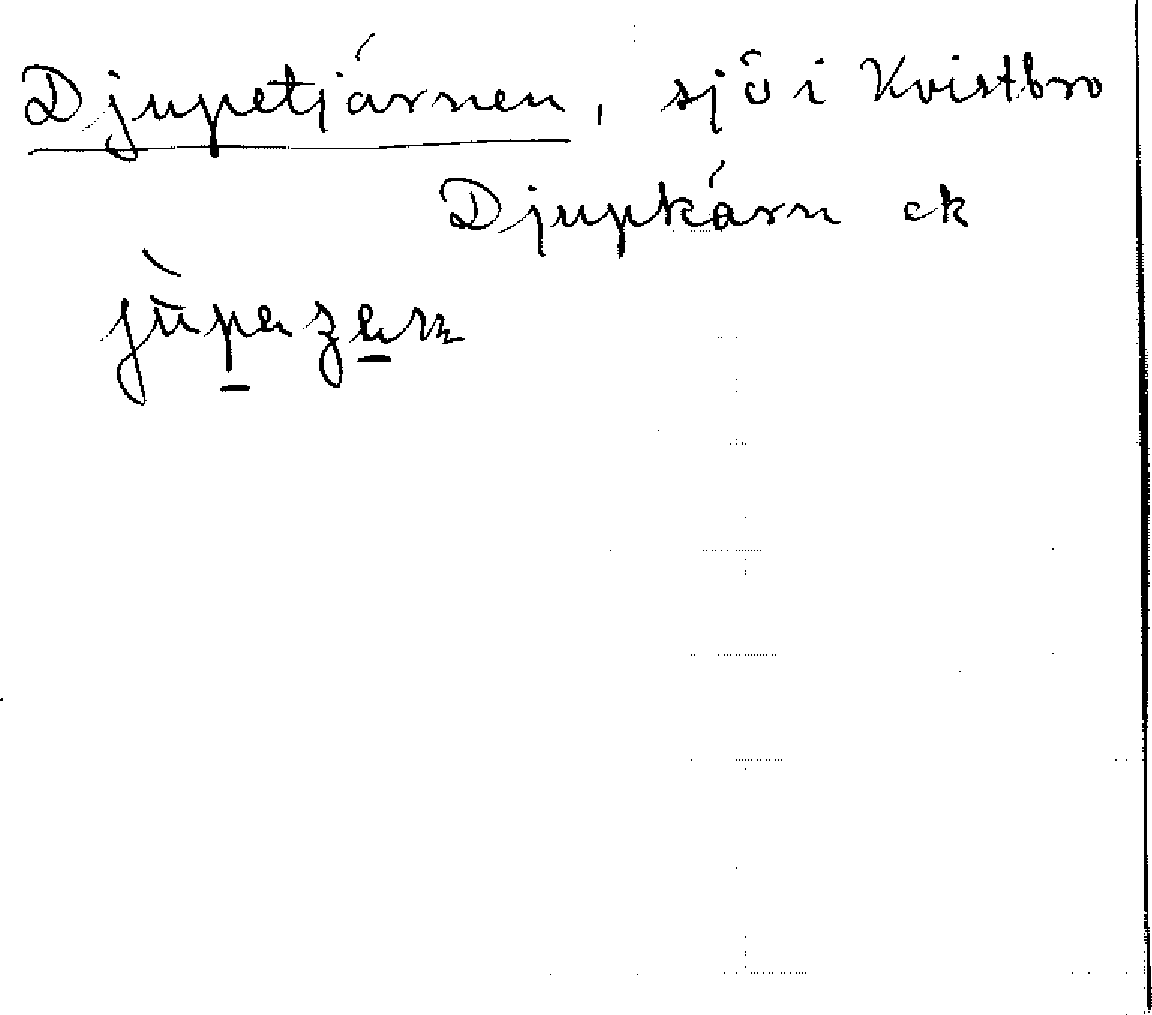 Djupetjärnen, sjö i Kvistbro
Djupkärn ek